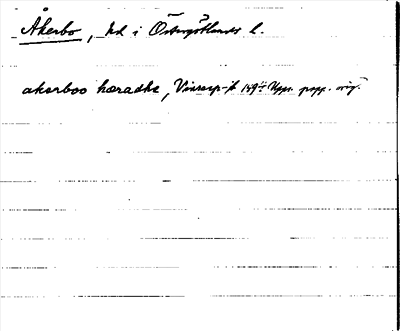 Åkerbo, hd i Östergötlands l.
akerboo hæradhe, 149 Upps. papp. orig.